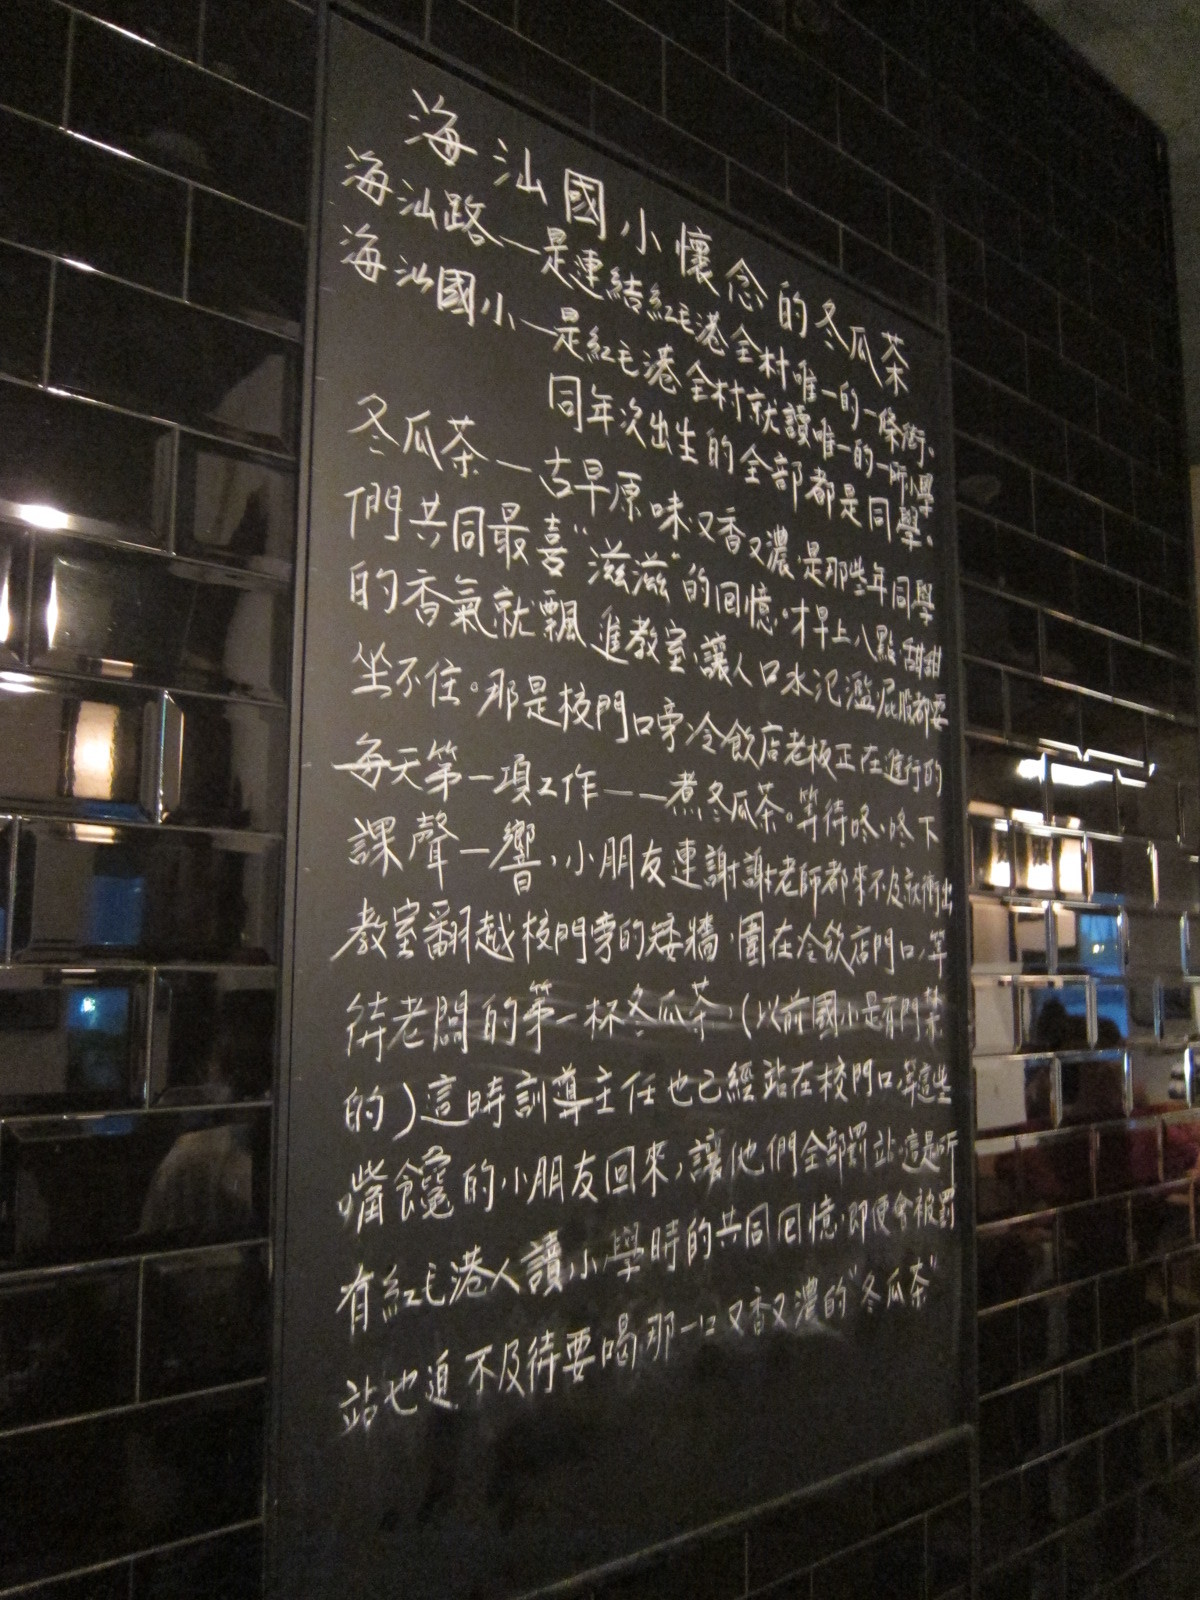 海汕國小懷念的冬瓜茶
海汕路—是連結紅毛港全村唯一的一條街、
海汕國小—是紅毛港全村就讀唯一的一所小學
同年次出生的全部都是同學、
冬瓜茶—古早原味、又香又濃、是那些年同學
們共同最喜"滋滋"的回憶、才早上八點、甜甜
的香氣就飄進教室、讓人口水氾濫、屁股都要
坐不住。那是校門口旁、冷飲店老板正在進行的
每天第一項工作——煮冬瓜茶。等待咚、咚下
課聲一響、小朋友連謝謝老師都來不及就衝出
教室翻越校門旁的矮牆、圍在冷飲店門口、等
待老闆的第一杯冬瓜茶、(以前國小是有門禁
的)這時訓導主任也已經站在校門口、等這些
嘴饞的小朋友回來,讓他們全部罰站、這是所
有紅毛港人讀小學時的共同回憶、即使會被罰
站也迫不及待要喝那一口又香又濃的"冬瓜茶"